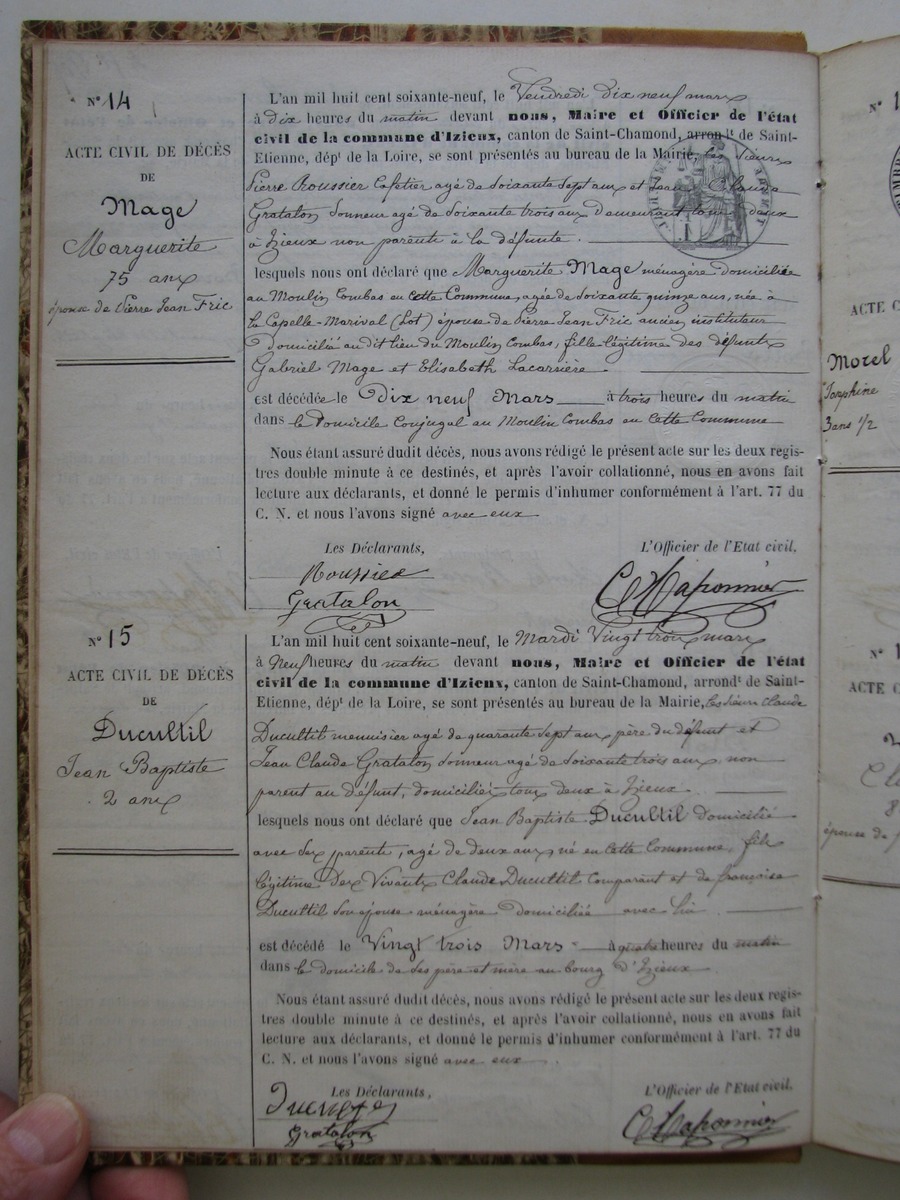 N° 14
ACTE CIVIL DE DÉCÈS
DE
Mage
Marguerite
75 ans
épouse de Pierre Jean Fric
L'an mil huit cent soixante-neuf, le Vendredi dix neuf mars
à dix heures du matin devant nous, Maire et Officier de l'état
civil de la commune d'Izieux, canton de Saint-Chamond, arron t de Saint-
Etienne, dépt de la Loire, se sont présentés au bureau de la Mairie, les sieurs
Pierre Roussier Cafetier agé de soixante sept ans et Jean Claude
Gratalon Sonneur agé de Soixante trois ans Demeurant tous deux
à Izieux non parents à la défunte.
lesquels nous ont déclaré que Marguerite Mage ménagère domiciliée
au Moulin Combas en Cette Commune, agée de soixante quinze ans, née à
la Capelle-Marival (Lot) épouse de Pierre Jean Fric ancien instituteur
Domicilié au dit lieu du Moulin Combas, fille légitime des défunts
Gabriel Mage et Elisabeth Lacarrière.
est décédée le Dix neuf Mars à trois heures du matin
dans le Domicile Conjugal au Moulin Combas en Cette Commune
Nous étant assuré dudit décès, nous avons rédigé le présent acte sur les deux regis-
tres double minute à ce destinés, et après l'avoir collationné, nous en avons fait
lecture aux déclarants, et donné le permis d'inhumer conformément à l'art. 77 du
C. N. et nous l'avons signé avec eux
Les Déclarants,
L'Officier de l'Etat civil,
Roussier
Gratalon
N° 15
ACTE CIVIL DE DÉCÈS
DE
Ducultil
Jean Baptiste
2 ans
L'an mil huit cent soixante-neuf, le Mardi Vingt trois mars
à Neuf heures du matin devant nous, Maire et Officier de l'état
civil de la commune d'Izieux, canton de Saint-Chamond, arrondt de Saint-
Etienne, dépt de la Loire, se sont présentés au bureau de la Mairie, les sieurs Claude
Ducultil menuisier agé de quarante sept ans père du défunt et
Jean Claude Gratalon Sonneur agé de Soixante trois ans, non
parent au défunt, domiciliés tous deux à Izieux.
lesquels nous ont déclaré que Jean Baptiste Ducultil domicilié
avec ses parents, agé de deux ans, né en Cette Commune, fils
légitime des Vivants Claude Ducultil comparant et de françoise
Ducultil son épouse ménagère Domiciliée avec lui
est décédé le Vingt trois Mars à quatre heures du matin
dans le domicile de ses père et mère au bourg d'Izieux
Nous étant assuré dudit décès, nous avons rédigé le présent acte sur les deux regis-
tres double minute à ce destinés, et après l'avoir collationné, nous en avons fait
lecture aux déclarants, et donné le permis d'inhumer conformément à l'art. 77 du
C. N. et nous l'avons signé avec eux.
Les Déclarants,
L'Officier de l'Etat civil.
Gratalon
N° 1
ACTE C
Morel
Josephine
3 ans 1/2
N°
ACTE C
épouse de